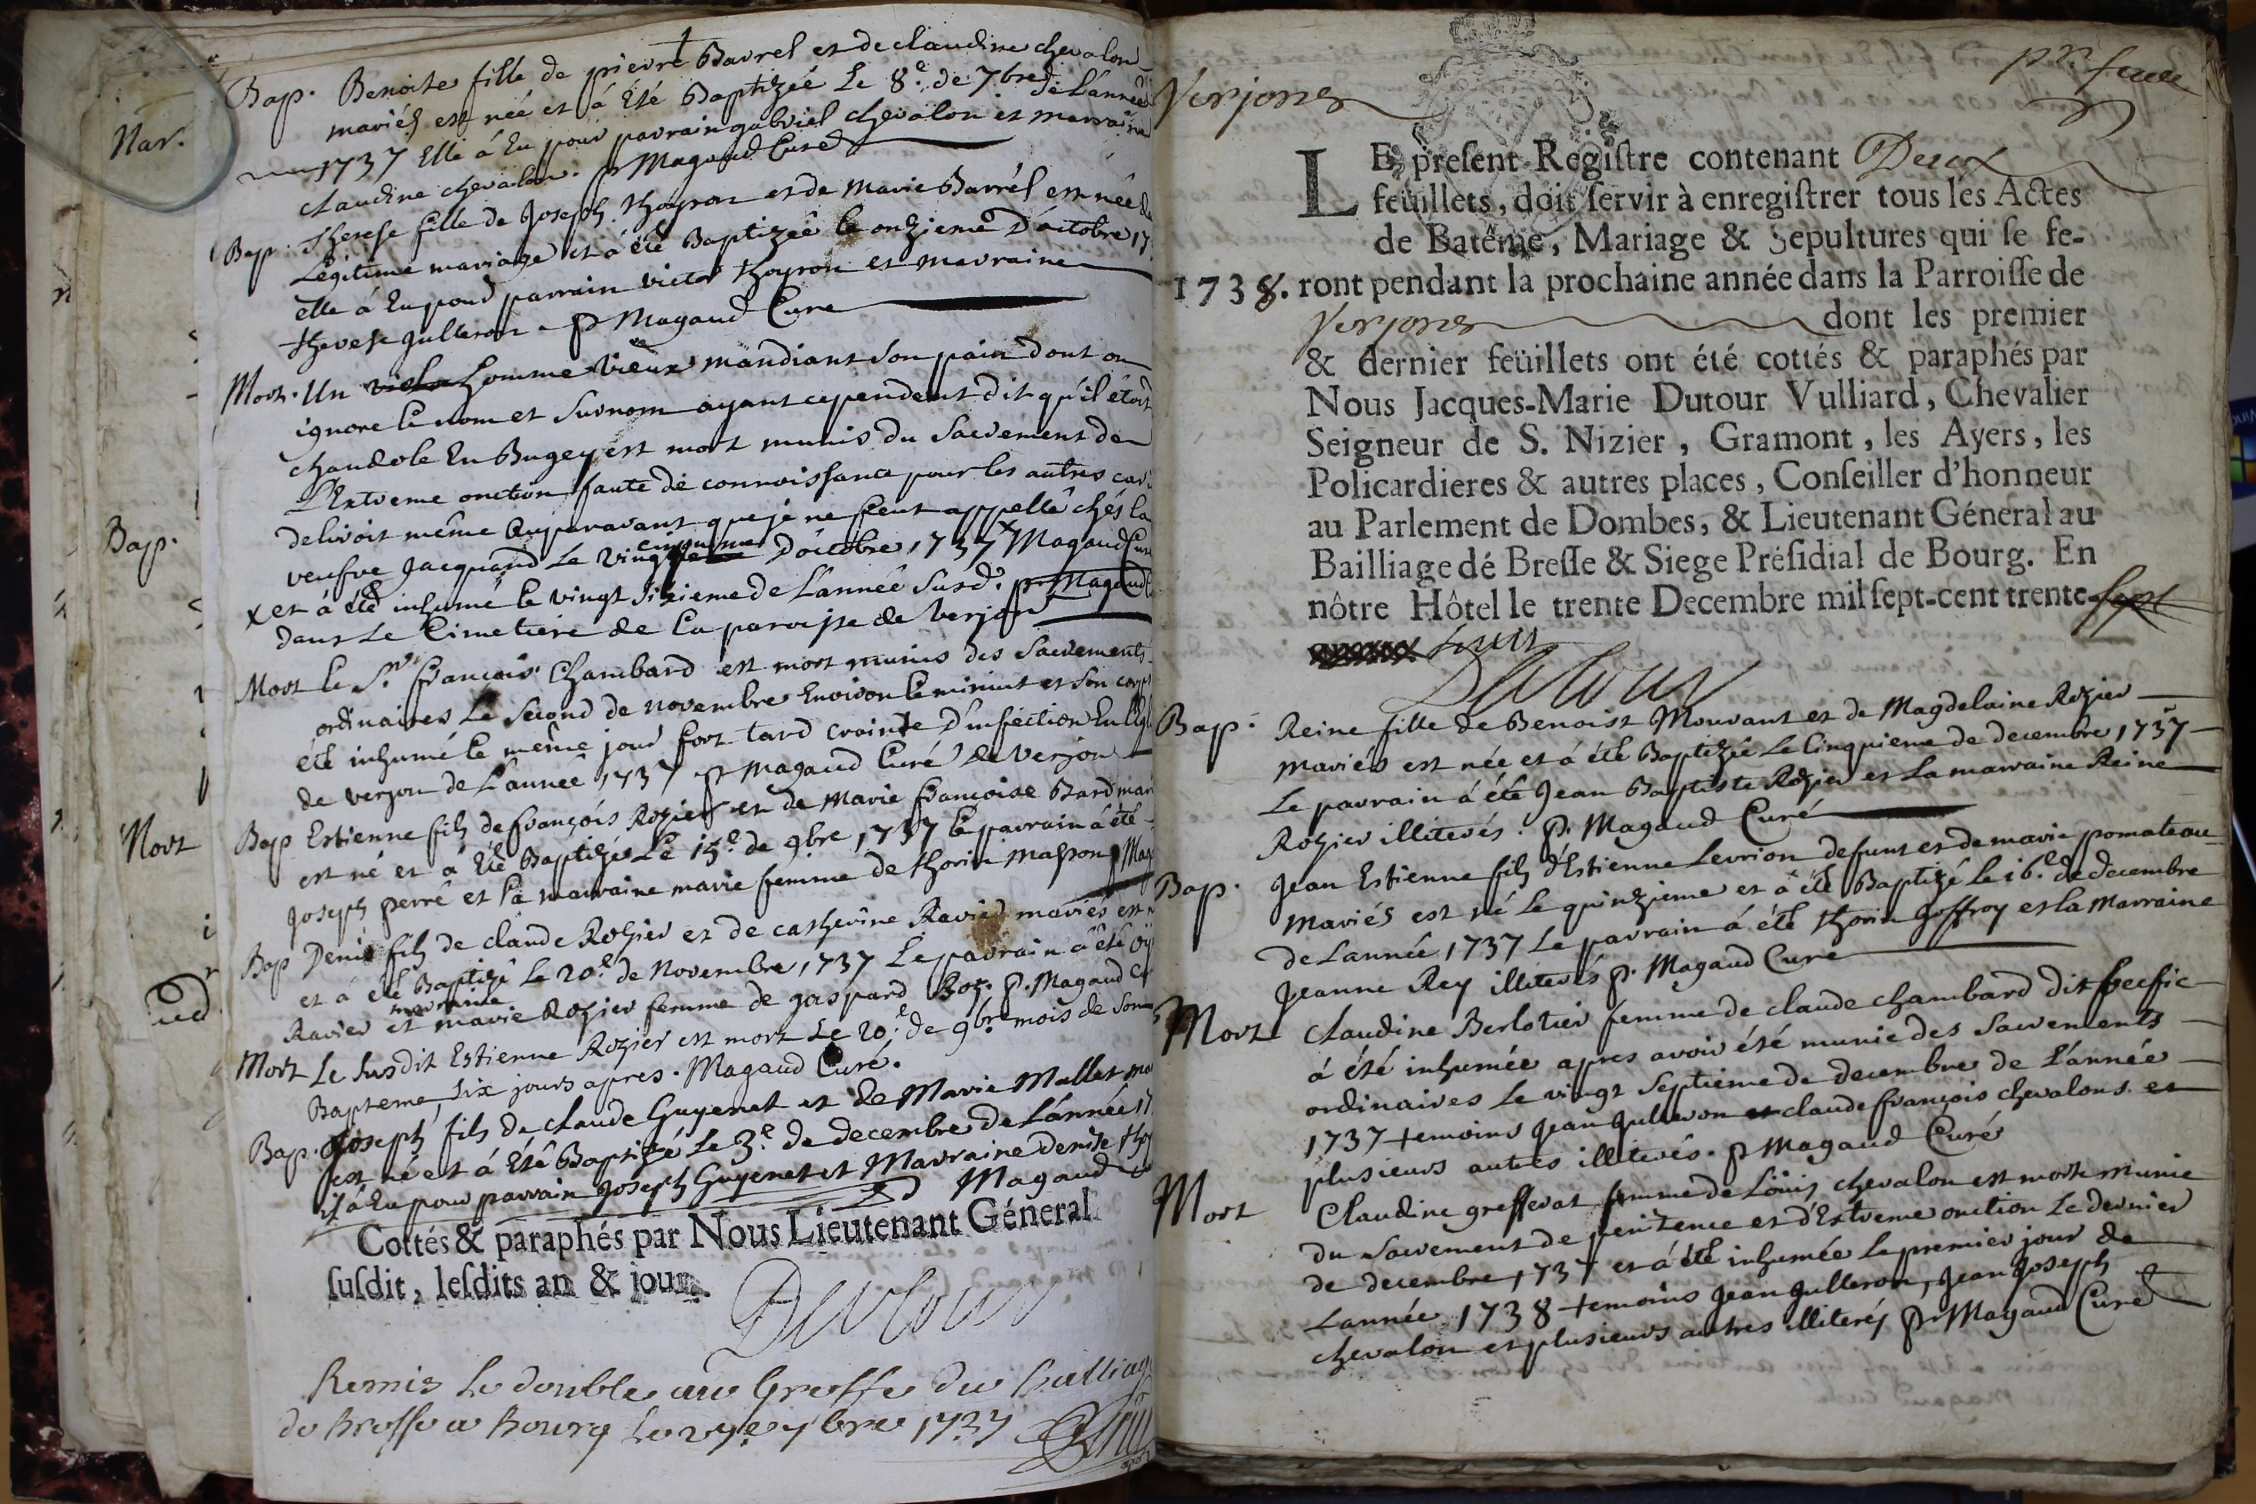 Nar.
Bap.
Mort
Bap. Benoite fille de pierre Barrel et de claudine chevalon
mariés est née et á Eté Baptizée Le 8e. de 7bre de L'année
1737 Elle á Eu pour parrain gabriel chevalon et marraine
claudine chevalon. P Magaud Curé
Bap. Therese fille de Joseph thoyron et de Marie Barrél est née de
Légitime mariage et á été Baptizée le onzieme D'octobre 17
elle á Eu pour parrain victor thoyron et marraine
therese Julleron P Magaud Cure
Mort. Un homme vieux mandiant son pain dont on
ignore le nom et surnom ayant cependent dit qu'il étoit
chandole En Bugey est mort munis du Sacrement de
L'Extreme onction faute de connoissance pour les autres car
delivoit même Auparavant que je ne feut appellé chés la
veufve Jacquand Le vingt cinquieme D'octobre 1737 x Magaud Curé
x et á été inhumé le vingt sixieme de L'année susd. p Magaud
dans Le Cimetiere de la paroisse de verjon
Mort le Sr. francois Chambard est mort munis des Sacrements
ordinaires Le second de novembre Environ le minuit et son corps
été inhumé le même jour fort tard crainte D'infection En L'egl
de verjon de L'année 1737 P Magaud Curé de Verjon
Bap Estienne filz de françois Rozier et de Marie francoise Bard mari
est né et á Eté Baptizé Le 15e. de 9bre 1737 le parrain á été
Joseph perré et la marraine marie femme de thorin Masson p Mag
Bap Denis filz de claude Rozier et de catherine Ravier mariés est n
et á été Baptizé Le 20e. de Novembre 1737 Le parrain á été
Ravier et marraine marie Rozier femme de gaspard Boz. P. Magaud Cu
Mort Le susdit Estienne Rozier est mort Le 20e. de 9bre mois de son
Bapteme, six jours apres. Magaud Curé.
Bap. Joseph fils de claude Guyenet et de Marie Mallet ma
est né et á Eté Baptizé Le 3e. de decembre de L'année 17
il á Eu pour parrain Joseph Guyenet et Marraine denise thoy
Magaud
Cottés & paraphés par Nous Lieutenant Géneral
susdit, lesdits an & jour.
Dutour
Remis Le double au Greffe du Bailliage
de Bresse a Bourg Le 1737
Verjon
pr. feuil
LE present Registre contenant Deux
feüillets, doit servir à enregistrer tous les Actes
de Batême, Mariage & Sepultures qui se fe-
1738. ront pendant la prochaine année dans la Parroisse de
Verjon dont les premier
& dernier feüillets ont été cottés & paraphés par
Nous Jacques-Marie Dutour Vulliard, Chevalier
Seigneur de S. Nizier, Gramont, les Ayers, les
Policardieres & autres places, Conseiller d'honneur
au Parlement de Dombes, & Lieutenant Géneral au
Bailliage dé Bresse & Siege Présidial de Bourg. En
nôtre Hôtel le trente Decembre mil sept-cent trente-sept
Dutour
Bap. Reine fille de Benoist Mouvant et de Magdelaine Rozier
mariés est née et á été Baptizée Le Cinquieme de decembre 1737
Le parrain á été Jean Baptiste Rozier et La marraine Reine
Rozier illiterés. P. Magaud Curé
Bap. Jean Estienne filz d'Estienne Levrion defunt et de marie pomateau
Mariés est né Le quinzieme et á été Baptizé Le 16e. de decembre
de L'année 1737 Le parrain á été thorin Joffroy et la Marraine
Jeanne Rey illiterés P. Magaud Cure
Mort Claudine Berlotier femme de claude chambard dit
á été inhumée apres avoir été munie des sacrements
ordinaires Le vingt Septieme de decembre de L'année
1737 temoins Jean Julleron et claude françois chevalons et
plusieurs autres illiterés. P Magaud Curé
Mort Claudine grefferat femme de Loüis chevalon est morte munie
du sacrement de penitence et d'Extreme onction Le dernier
de decembre 1737 et á été inhumée Le premier jour de
L'année 1738 temoins Jean Julleron, Jean Joseph
chevalon et plusieurs autres illiterés P. Magaud Curé